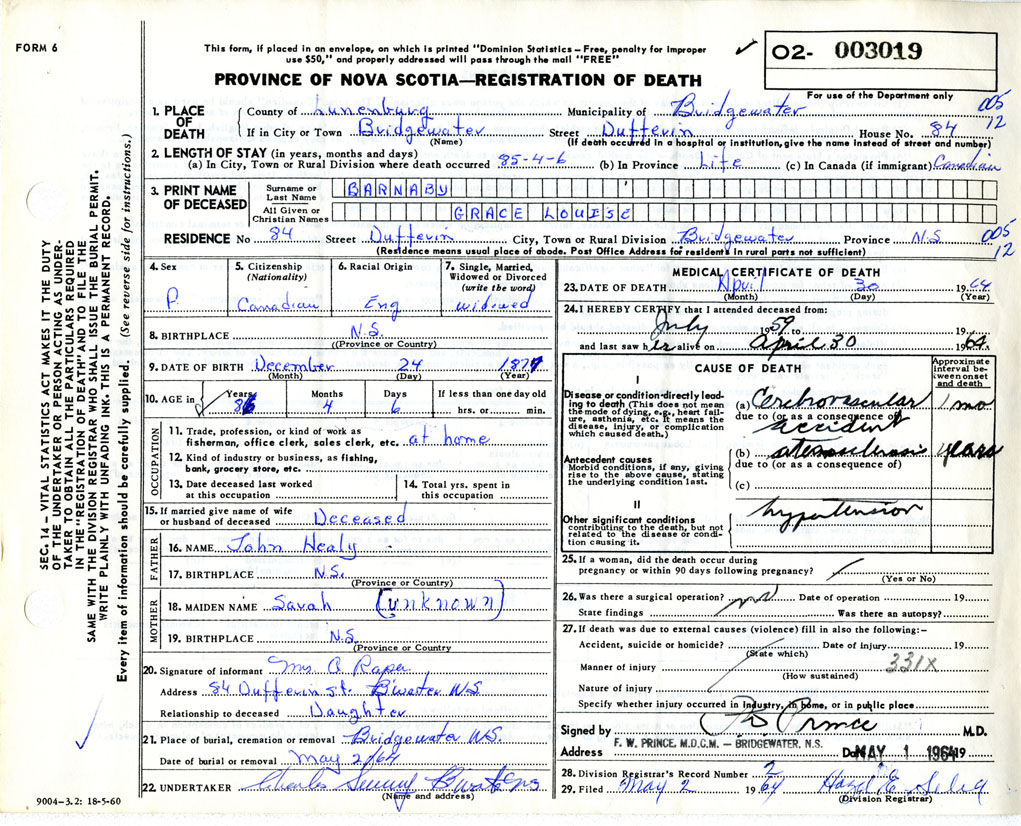 FORM 6
This form, if placed in an envelope, on which is printed "Dominion Statistics – Free, penalty for improper
use $50," and properly addressed will pass through the mail "FREE"
✓
02- 003019
For use of the Department only
PROVINCE OF NOVA SCOTIA—REGISTRATION OF DEATH
1. PLACE OF DEATH
County of Lunenburg Municipality of Bridgewater 005
If in City or Town Bridgewater Street Dufferin House No. 84 12
(Name) (If death occurred in a hospital or institution, give the name instead of street and number)
2. LENGTH OF STAY (in years, months and days)
(a) In City, Town or Rural Division where death occurred 85-4-6 (b) In Province Life (c) In Canada (if immigrant) Canadian
3. PRINT NAME OF DECEASED
Surname or Last Name BARNABY
All Given or Christian Names GRACE LOUISE
RESIDENCE No 84 Street Dufferin City, Town or Rural Division Bridgewater Province N.S. 005
(Residence means usual place of abode. Post Office Address for residents in rural parts not sufficient) 12
4. Sex F.
5. Citizenship (Nationality) Canadian
6. Racial Origin Eng
7. Single, Married, Widowed or Divorced (write the word) widowed
8. BIRTHPLACE N.S.
(Province or Country)
9. DATE OF BIRTH December 24
(Month) (Day) (Year)
10. AGE in Years Months Days If less than one day old
4 6 hrs. or min.
OCCUPATION
11. Trade, profession, or kind of work as
fisherman, office clerk, sales clerk, etc. at home
12. Kind of industry or business, as fishing,
bank, grocery store, etc.
13. Date deceased last worked
at this occupation
14. Total yrs. spent in
this occupation
15. If married give name of wife
or husband of deceased Deceased
FATHER
16. NAME John Healy
17. BIRTHPLACE N.S.
(Province or Country)
MOTHER
18. MAIDEN NAME Sarah (unknown)
19. BIRTHPLACE N.S.
(Province or Country)
20. Signature of informant Mrs
Address 84 Dufferin St. B'water N.S
Relationship to deceased Daughter
21. Place of burial, cremation or removal Bridgewater N.S.
Date of burial or removal May 2/64
22. UNDERTAKER Charles
(Name and address)
9004–3.2: 18-5-60
MEDICAL CERTIFICATE OF DEATH
23. DATE OF DEATH April 30 1964
(Month) (Day) (Year)
24. I HEREBY CERTIFY that I attended deceased from:
July 1959 to 19
and last saw her alive on April 30 1964
CAUSE OF DEATH
Approximate interval between onset and death
I
Disease or condition directly leading to death (This does not mean the mode of dying, e.g., heart failure, asthenia, etc. It means the disease, injury, or complication which caused death.)
(a) Cerebrovascular 1 mo
due to (or as a consequence of)
accident
Antecedent causes
Morbid conditions, if any, giving rise to the above cause, stating the underlying condition last.
(b) arteriosclerosis years
due to (or as a consequence of)
(c)
II
Other significant conditions
contributing to the death, but not related to the disease or condition causing it.
hypertension
25. If a woman, did the death occur during
pregnancy or within 90 days following pregnancy?
(Yes or No)
26. Was there a surgical operation? no Date of operation 19
State findings Was there an autopsy?
27. If death was due to external causes (violence) fill in also the following:–
Accident, suicide or homicide? Date of injury 19
(State which)
Manner of injury 331X
(How sustained)
Nature of injury
Specify whether injury occurred in Industry, in home, or in public place
Signed by Prince M.D.
Address F. W. PRINCE, M.D.C.M. – BRIDGEWATER, N.S. Date MAY 1 1964 19
28. Division Registrar's Record Number 2
29. Filed May 2 1964 Hazel E. Selig
(Division Registrar)
SEC. 14 – VITAL STATISTICS ACT MAKES IT THE DUTY
OF THE UNDERTAKER OR PERSON ACTING AS UNDER-
TAKER TO OBTAIN ALL THE PARTICULARS REQUIRED
IN THE "REGISTRATION OF DEATH" AND TO FILE THE
SAME WITH THE DIVISION REGISTRAR WHO SHALL ISSUE THE BURIAL PERMIT.
WRITE PLAINLY WITH UNFADING INK. THIS IS A PERMANENT RECORD.
Every item of information should be carefully supplied. (See reverse side for instructions.)